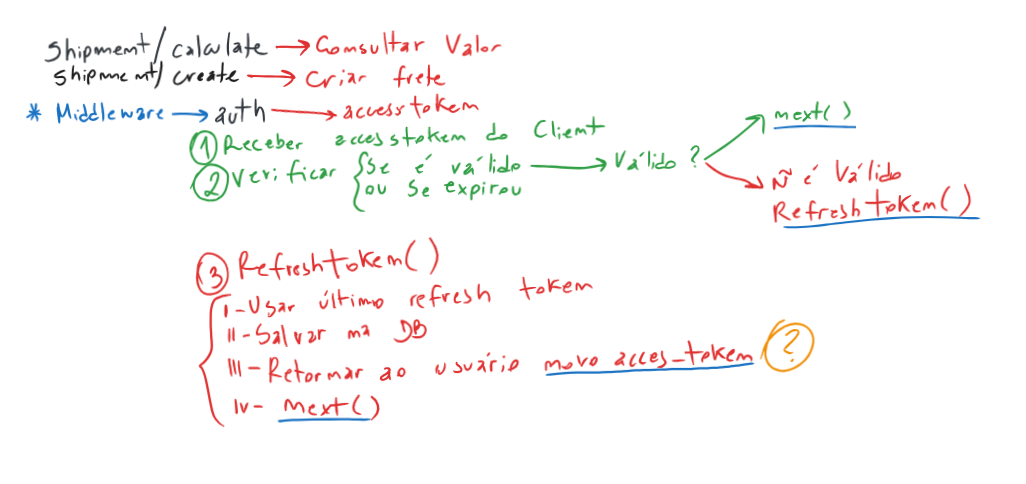 Shipment/calculate → Consultar Valor
Shipment/create → Criar frete
* Middleware → auth → access token
1 Receber access token do Client
2 Verificar { Se é válido → Válido ? → next()
ou se expirou
Ñ é Válido
Refresh token()
3 Refresh token()
I - Usar último refresh token
II - Salvar na DB
III - Retornar ao usuário novo acces_token ?
IV - Next()